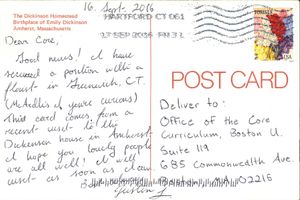 16. Sept. 2016
The Dickinson Homestead
Birthplace of Emily Dickinson
Amherst, Massachusetts
HARTFORD CT 061
13 SEP 2016 PM 2 L
FOREVER
USA
Dear Core,
Good news! I have
secured a position with a
florist in Greenwich, C.T.
(McArdle's if you're curious)
This card comes from a
recent visit to the
Dickinson house in Amherst.
I hope you lovely people
are all well! I will
visit as soon as I can.
Justin
POST CARD
Deliver to:
Office of the Core
Curriculum, Boston U.
Suite 119
685 Commonwealth Ave.
Boston, MA, 02215